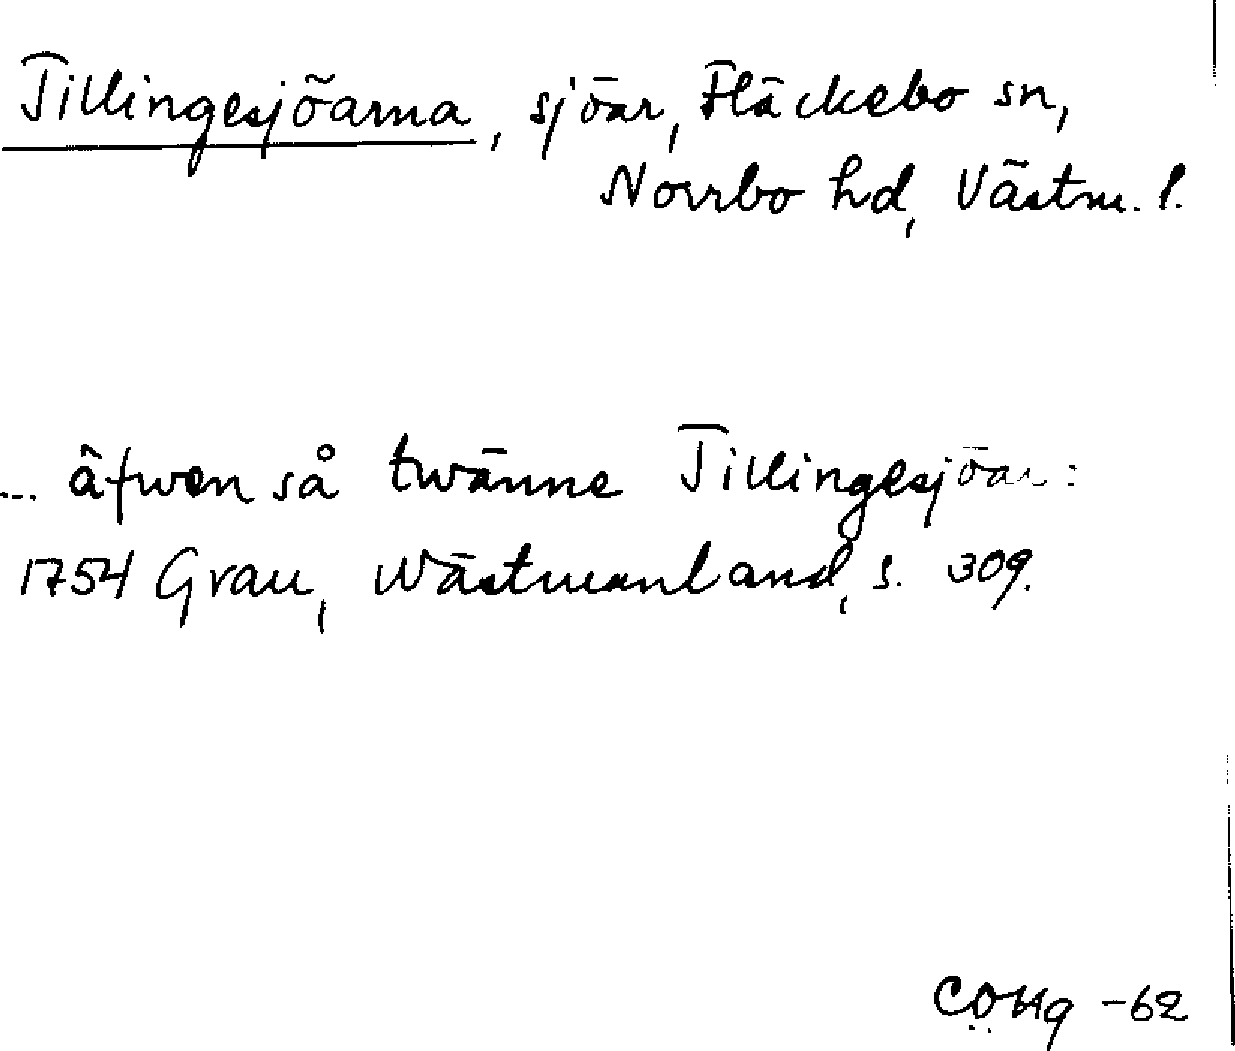 Tillingesjöarna, sjöar, Fläckebo sn,
Norrbo hd, Västm. l.
... äfwen så twänne Tillingesjöar:
1754 Grau, Wästmanland, s. 309.
CÖHg -62